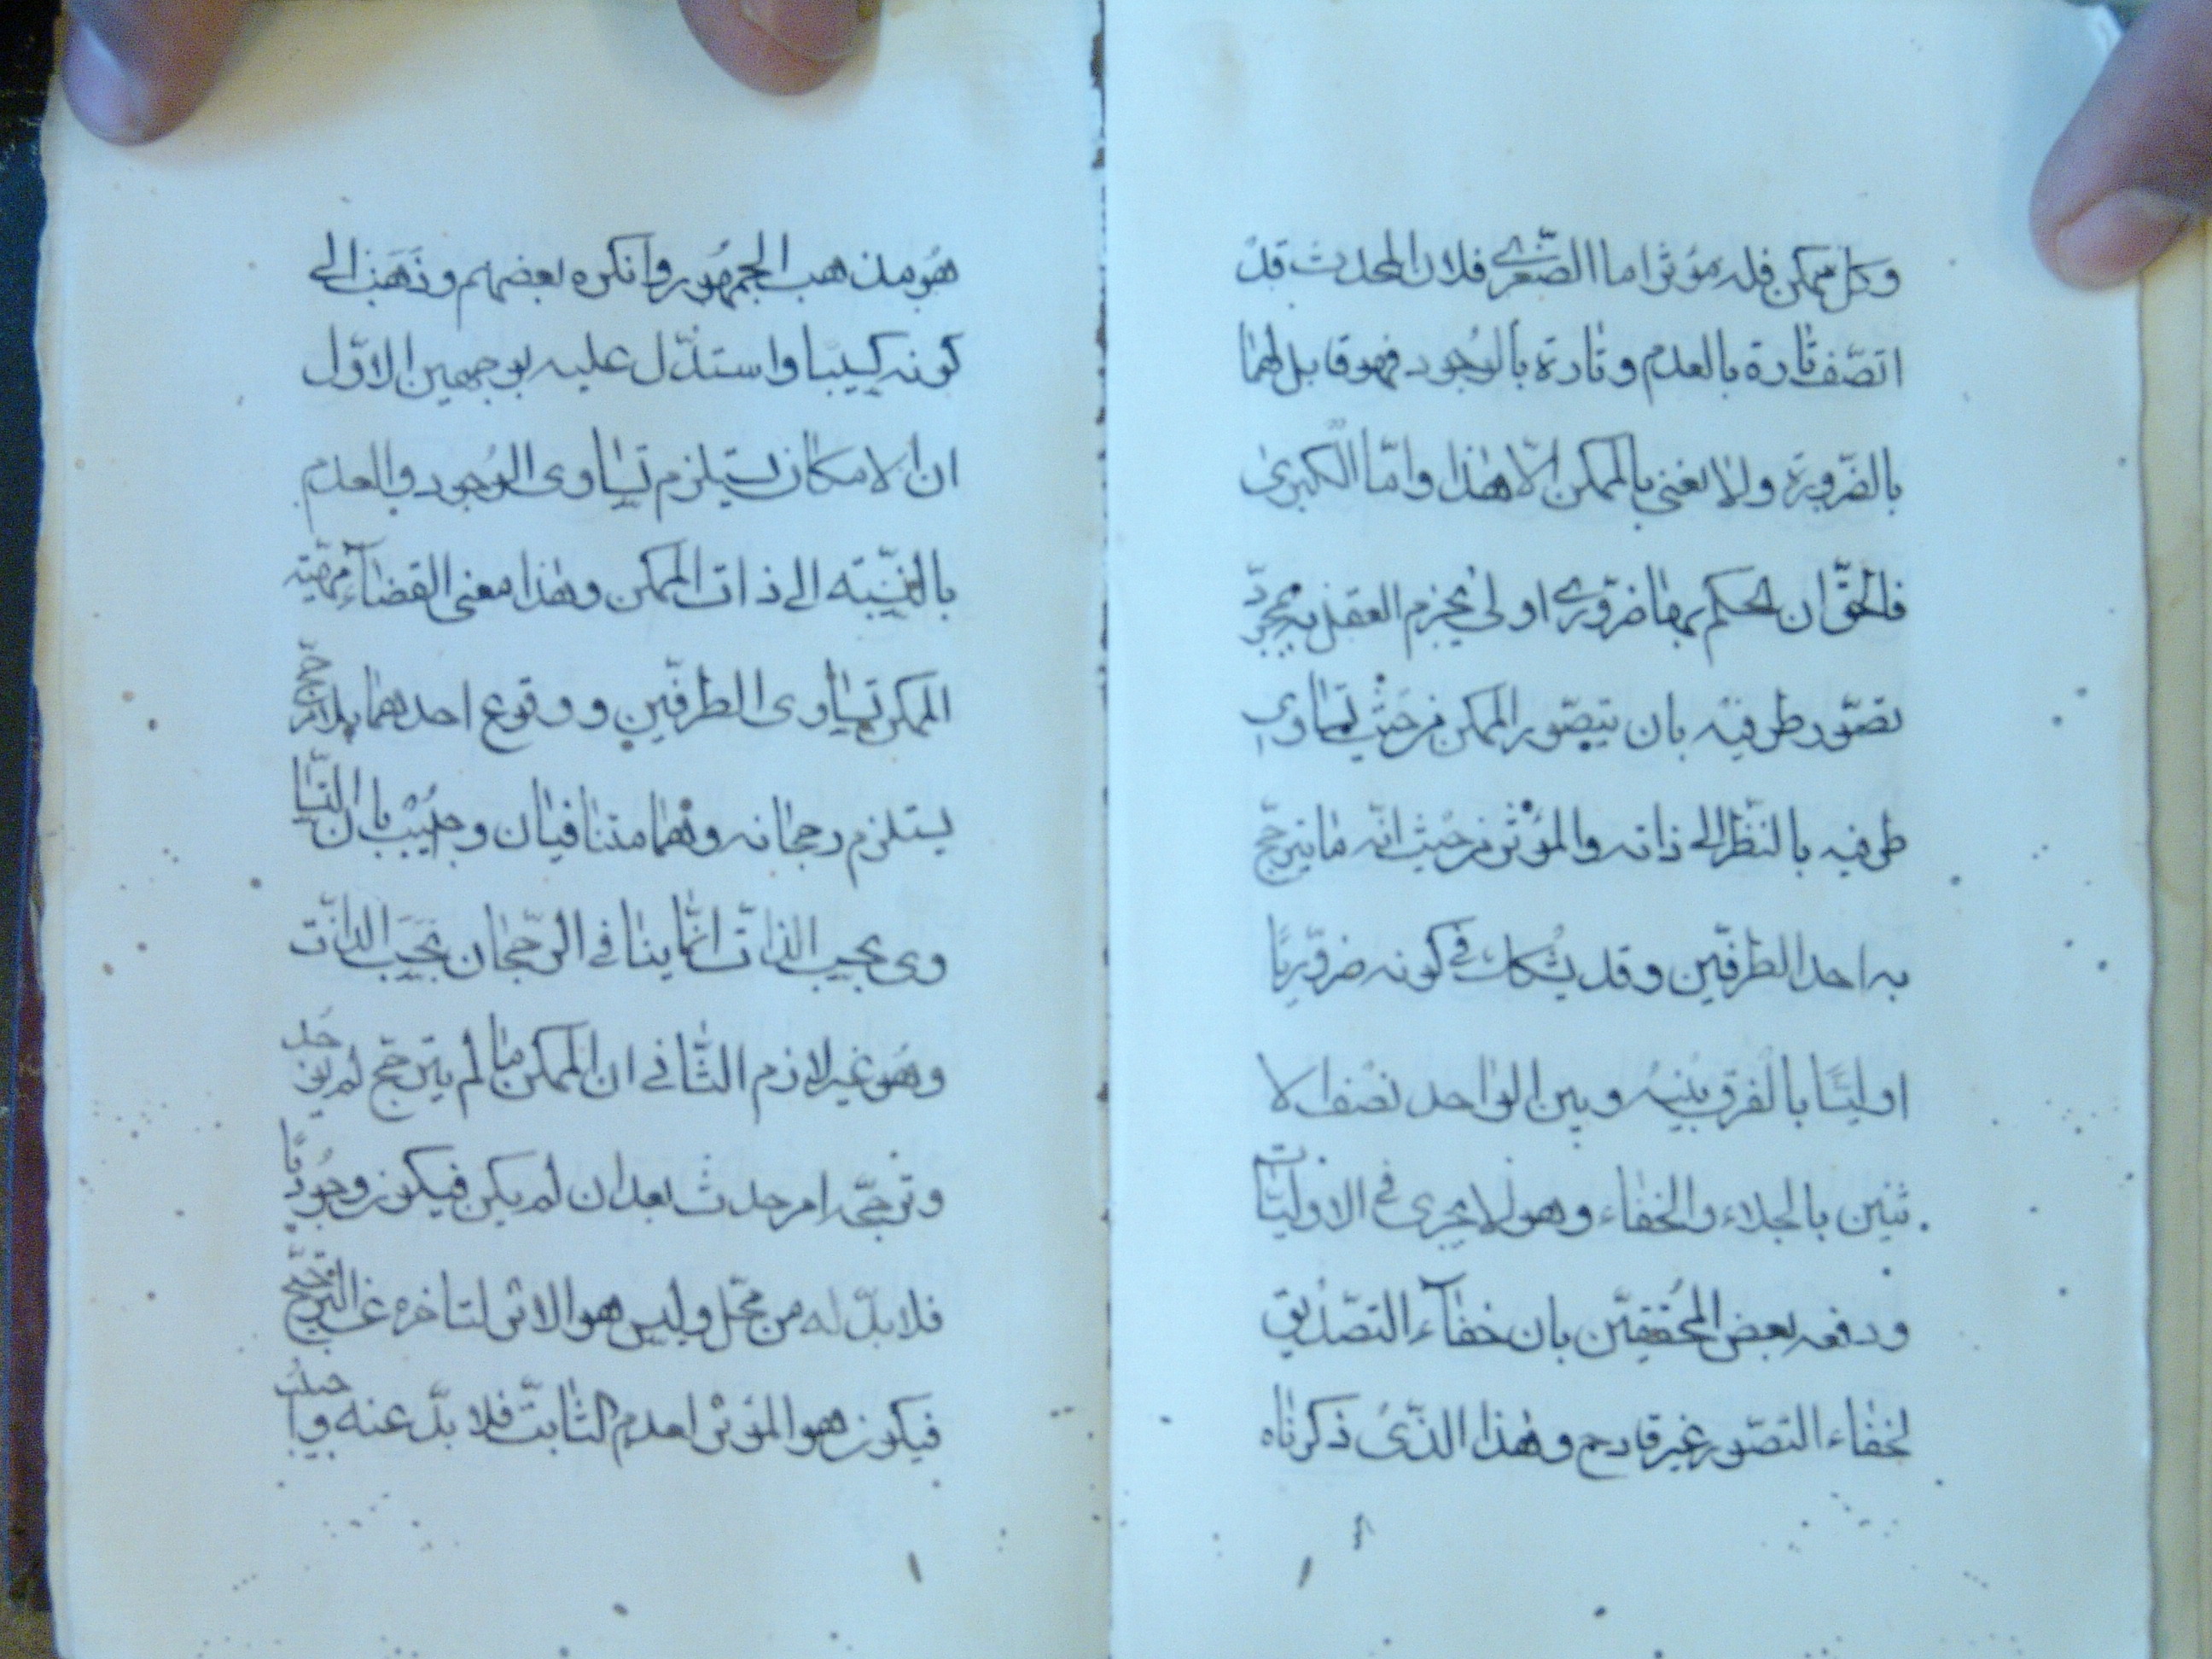 وكل ممكن فله مؤثر اما الصّغرى فلان المحدث قد
اتصّف تارة بالعدم وتارة بالوُجود فهو قابل لهما
بالضّرورة ولا نعنى بالممكن الّا هذا وامّا الكبرى
فالحقّ ان الحكم بها ضرورى اولى يجزم العقل به بمجرّد
تصوّر طرفيه بان يتصوّر الممكن من حيث تساوى
طرفيه بالنّظر الى ذاته والمؤثر من حيث انّه ما يترجّح
به احد الطرفين وقد يشكك فى كونه ضروريّا
اوليّا بالفرق بينه وبين الواحد نصف الا
ثنين بالجلاء والخفاء وهو لا يجرى فى الاوليّات
ودفعه بعض المحُققيّن بان خفآء التصّديق
لخفاء التصّور غير قادح وهذا الذّى ذكرناه
هُو مذهب الجمهُور وانكره بعضهم وذهَب الى
كونه كسبيا واستدّل عليه بوجهين الاوّل
ان الامكان يستلزم تساوى الوُجود والعدم
بالنسّبته الى ذات الممكن وهذا معنى القضآء مهيّته
الممكن تساوى الطرفيّن ووقوع احدهما بلا مرجّح
يستلزم رجحانه وهما متنافيان وجُيب بان التّسا
وى بحيب الذاتّ انمّا ينافى الرجّحان بحَيَب الذاتّ
وهُو غير لازم الثّانى ان الممكن ما لم يترجّح لم يوجد
وترجحّه امر حدث بعد ان لم يكن فيكون وجُوديّا
فلا بدّ له من محّل وليس هو الاثر لتاخره عن الترجّح
فيكون هو المؤثر لعدم الثابتّ فلا بدّ عنه واجيب